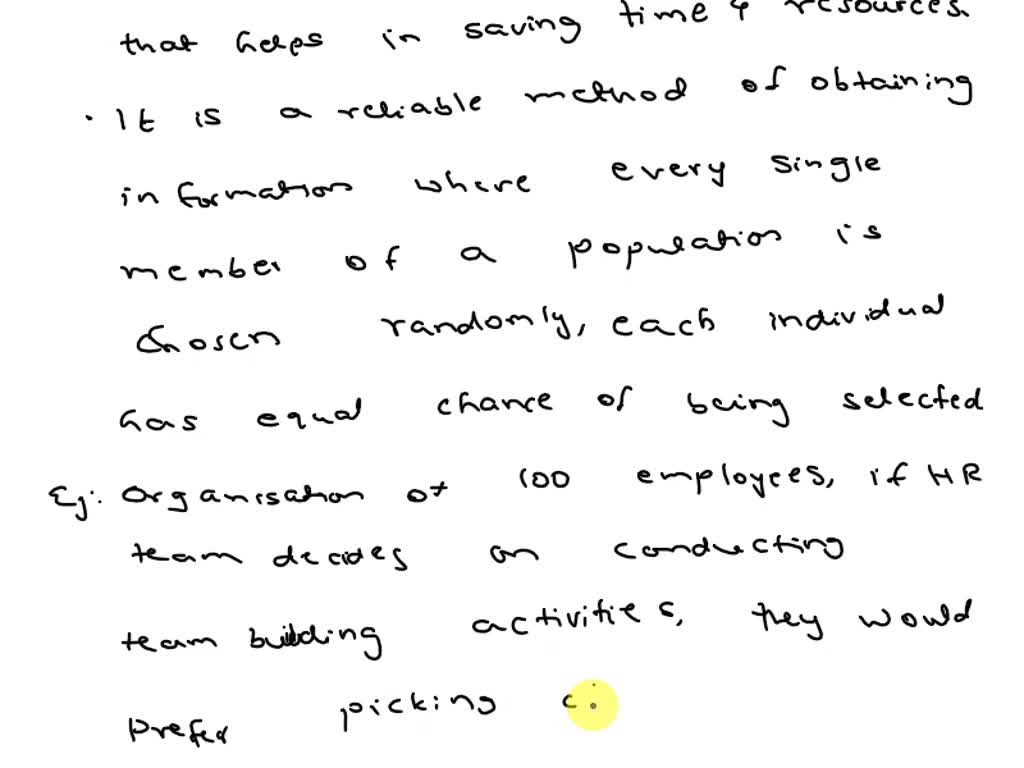 that helps in saving time & resources.
· It is a reliable method of obtaining
information where every single
member of a population is
chosen randomly, each individual
has equal chance of being selected
Eg:- Organisation of 100 employees, if HR
team decides on conducting
team building activities, they would
prefer picking c